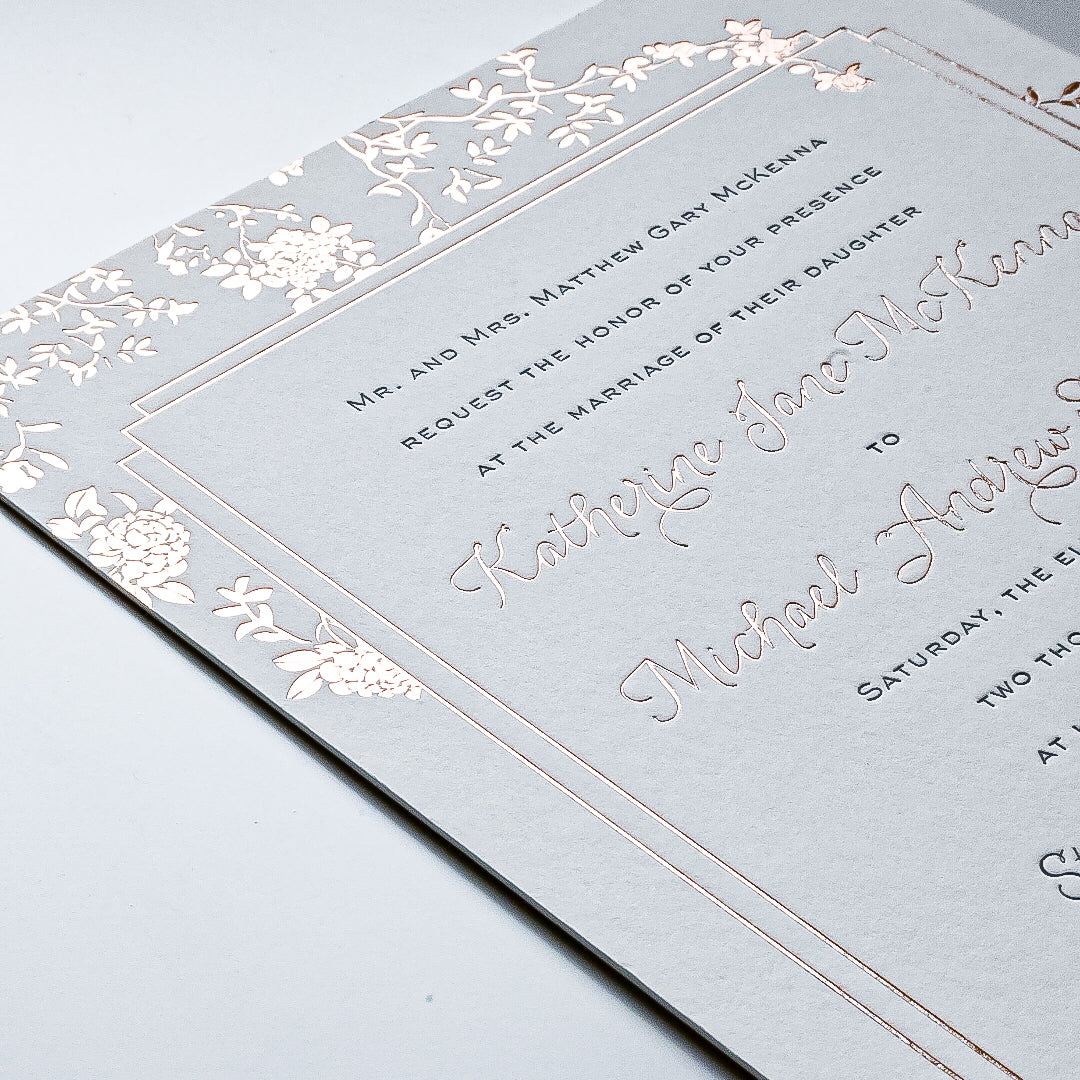 Mr. and Mrs. Matthew Gary McKenna
request the honor of your presence
at the marriage of their daughter
Katherine Jane McKenna
to
Michael Andrew
Saturday, the
two
at